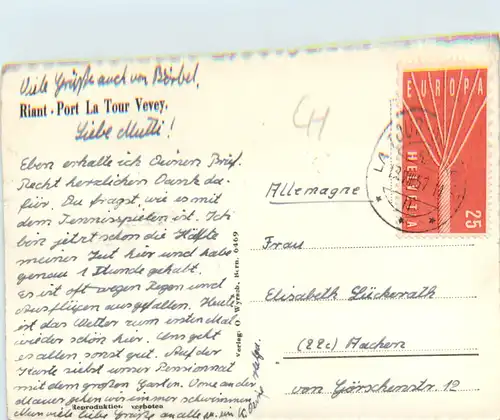 Viele Grüße auch von Bärbel.
Riant-Port La Tour Vevey.
Liebe Mutti!
Eben erhalte ich Deinen Brief.
Recht herzlichen Dank da-
für. Du fragst, wie es mit
dem Tennisspielen ist. Ich
bin jetzt schon die Hälfte
meiner Zeit hier und habe
genau 1 Stunde gehabt.
Es ist oft wegen Regen und
Ausflügen ausgefallen. Heute
ist das Wetter zum ersten Mal
wieder schön hier. Uns geht
es allen sonst gut. Auf der
Karte siehst unser Pensionnat
mit dem großen Garten. Vorne an der
Mauer gehen wir immer schwimmen.
Nun viele liebe Grüße an alle
Reproduktion verboten
Helga.
Verlag: Bern. 6469
CH
EUROPA
HELVETIA
25
LA
57
Allemagne
Frau
Elisabeth Lückerath
(22c) Aachen
von Görschenstr. 12